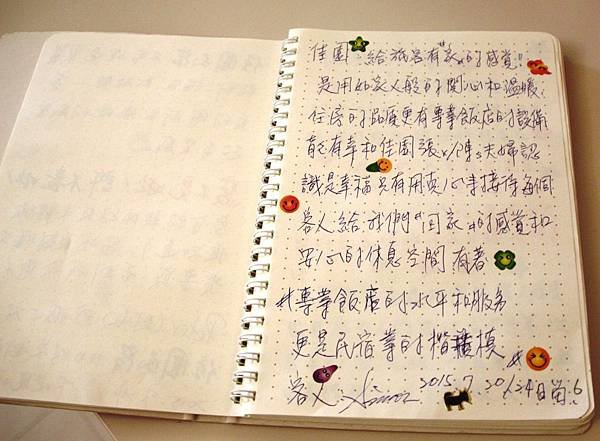 佳園 給旅客有"家"的感覺!
是用如家人般的関心和溫暖,
住房的品質更有專業飯店的設備
能有幸和佳園張s/陳s夫婦認
識是幸福 只有用真心在接待每個
客人給我們"回家"的感覺和
安心的休息空間 有著
#專業飯店的水平和服務
更是民宿業的楷模 #
客人 2015.7.20/24日